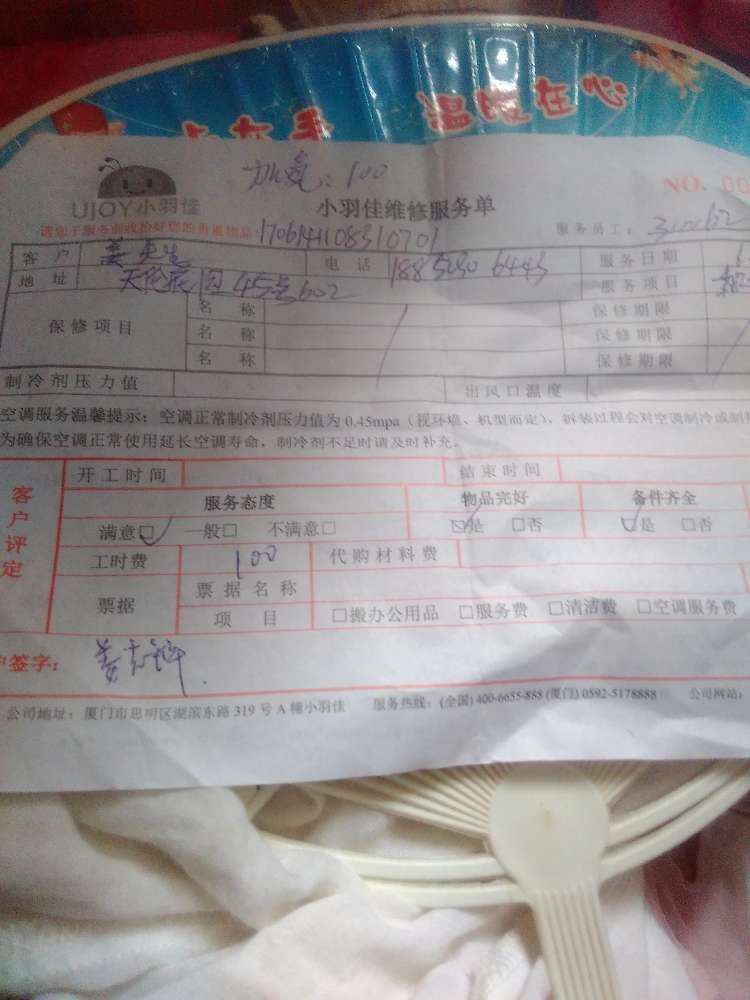 温暖在心
加氨:100
UJOY小羽佳
小羽佳维修服务单
NO. 00
请您于服务前收拾好您的贵重物品
1706141108310701
服务员工:
客户 姜先生 电话 服务日期
地址 45 602 服务项目
保修项目 名称 保修期限
名称 保修期限
名称 保修期限
制冷剂压力值 出风口温度
空调服务温馨提示:空调正常制冷剂压力值为 0.45mpa(视环境、机型而定),拆装过程会对空调制冷或制
为确保空调正常使用延长空调寿命,制冷剂不足时请及时补充。
客户评定
开工时间 结束时间
服务态度 物品完好 备件齐全
满意□ 一般□ 不满意□ □是 □否 □是 □否
工时费 100 代购材料费
票据 票据名称
项目 □搬办公用品 □服务费 □清洁费 □空调服务费
户签字:
公司地址:厦门市思明区湖滨东路 319 号 A 幢小羽佳 服务热线:(全国) 400-6655-888 (厦门) 0592-5178888 公司网站: